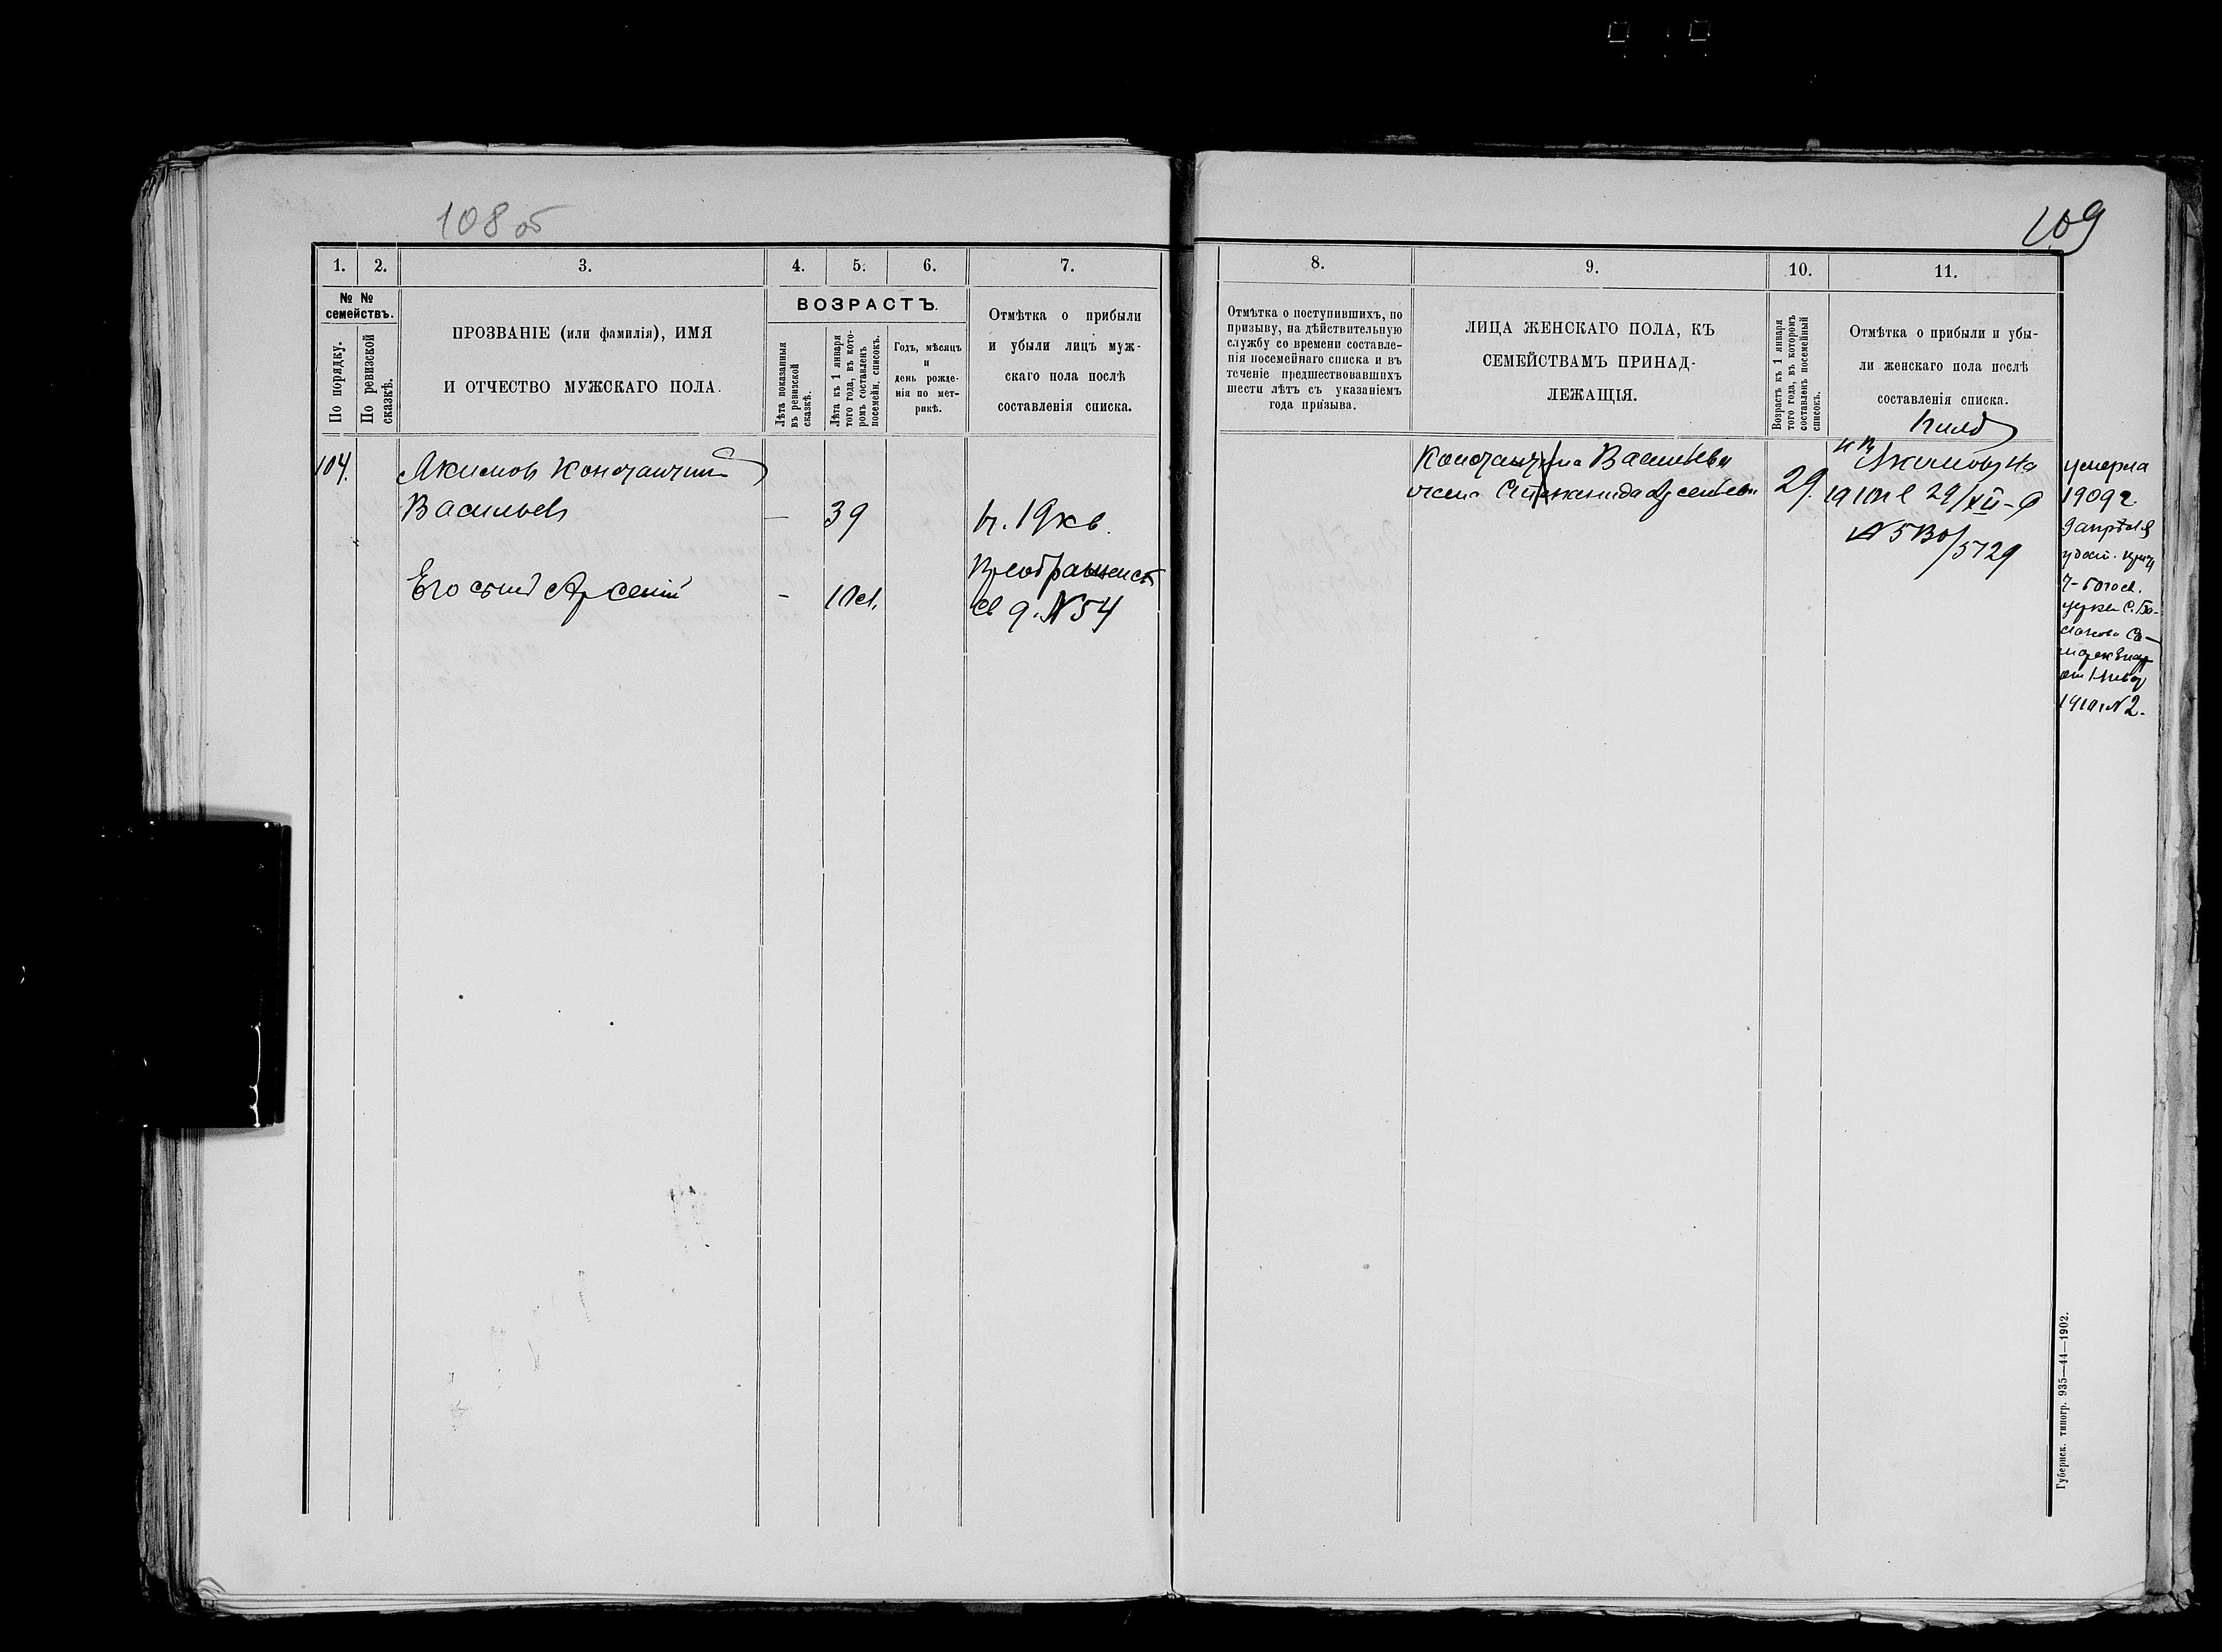 108 об
109
1.
2.
3.
4.
5.
6.
7.
8.
9.
10.
11.
№ №
семействъ.
По порядку.
По ревизской
сказкѣ.
ПРОЗВАНІЕ (или фамилія), ИМЯ
И ОТЧЕСТВО МУЖСКАГО ПОЛА.
ВОЗРАСТЪ.
Лѣта показанныя
въ ревизской
сказкѣ.
Лѣта къ 1 января
того года, въ кото-
ромъ составленъ
посемейн. списокъ.
Годъ, мѣсяцъ
и
день рожде-
нія по мет-
рикѣ.
Отмѣтка о прибыли
и убыли лицъ муж-
скаго пола послѣ
составленія списка.
Отмѣтка о поступившихъ, по
призыву, на дѣйствительную
службу со времени составле-
нія посемейнаго списка и въ
теченіе предшествовавшихъ
шести лѣтъ съ указаніемъ
года призыва.
ЛИЦА ЖЕНСКАГО ПОЛА, КЪ
СЕМЕЙСТВАМЪ ПРИНАД-
ЛЕЖАЩІЯ.
Возрастъ къ 1 января
того года, въ которомъ
составленъ посемейный
списокъ.
Отмѣтка о прибыли и убы-
ли женскаго пола послѣ
составленія списка.
104.
Якимов Константин
Васильев
— 39
Его сын Арсений
- 10 м.
19 кв.
Преображенск
д. № 54
Константина Васильева
жена Арсеньева
29.
Якимову на
29/XII-9
№ 5130/5729
умерла
1909 г.
9 апрѣля
церкви с. Бо-
от
1910 г. № 2.
Губернск. типогр. 935—44—1902.